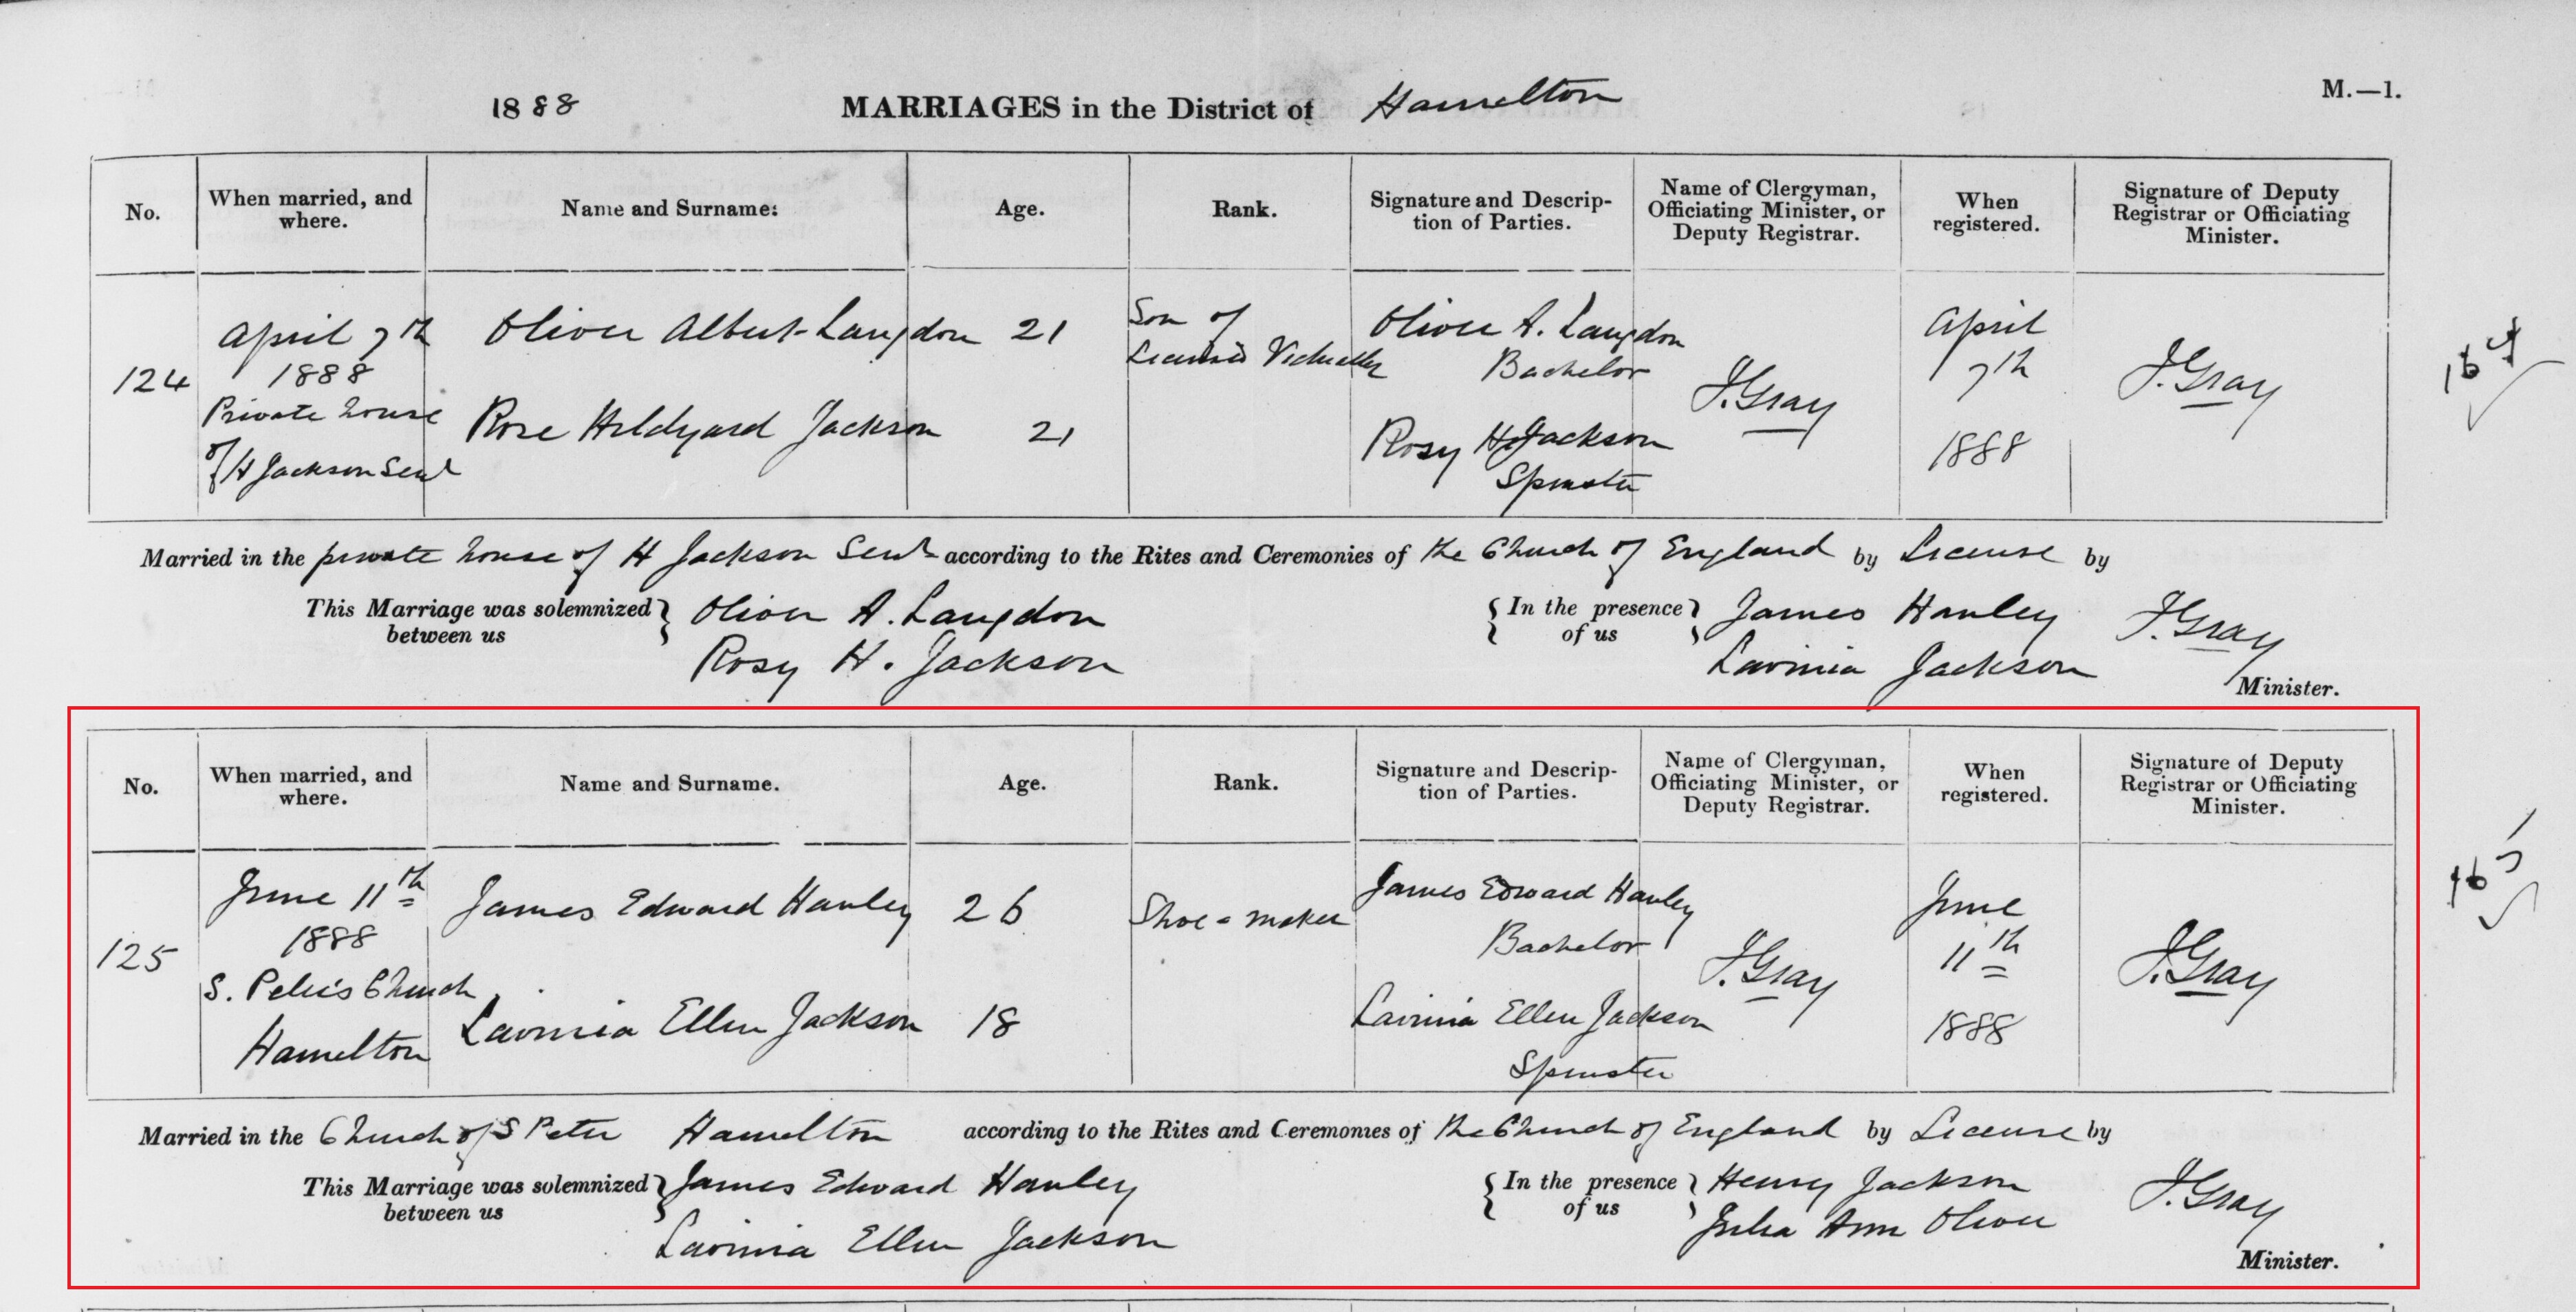 1888 MARRIAGES in the District of Hamelton M.—1.
No. When married, and where. Name and Surname: Age. Rank. Signature and Description of Parties. Name of Clergyman, Officiating Minister, or Deputy Registrar. When registered. Signature of Deputy Registrar or Officiating Minister.
124
April 7th
1888
Private house
of H Jackson Senr
Oliver Albert Langdon 21
Rose Hildyard Jackson 21
Son of
Licensed Victualler
Oliver A. Langdon
Bachelor
Rosy H Jackson
Spinster
J. Gray
April
7th
1888
J. Gray
164
Married in the private house of H Jackson Senr according to the Rites and Ceremonies of the Church of England by License by
This Marriage was solemnized between us
Oliver A. Langdon
Rosy H. Jackson
In the presence of us
James Hanley
Lavinia Jackson
J. Gray
Minister.
No. When married, and where. Name and Surname. Age. Rank. Signature and Description of Parties. Name of Clergyman, Officiating Minister, or Deputy Registrar. When registered. Signature of Deputy Registrar or Officiating Minister.
125
June 11th
1888
S. Peter's Church
Hamelton
James Edward Hanley 26
Lavinia Ellen Jackson 18
Shoe = maker
James Edward Hanley
Bachelor
Lavinia Ellen Jackson
Spinster
J. Gray
June
11th
1888
J. Gray
165
Married in the Church of S Peter Hamelton according to the Rites and Ceremonies of the Church of England by License by
This Marriage was solemnized between us
James Edward Hanley
Lavinia Ellen Jackson
In the presence of us
Henry Jackson
Julia Ann Oliver
J. Gray
Minister.